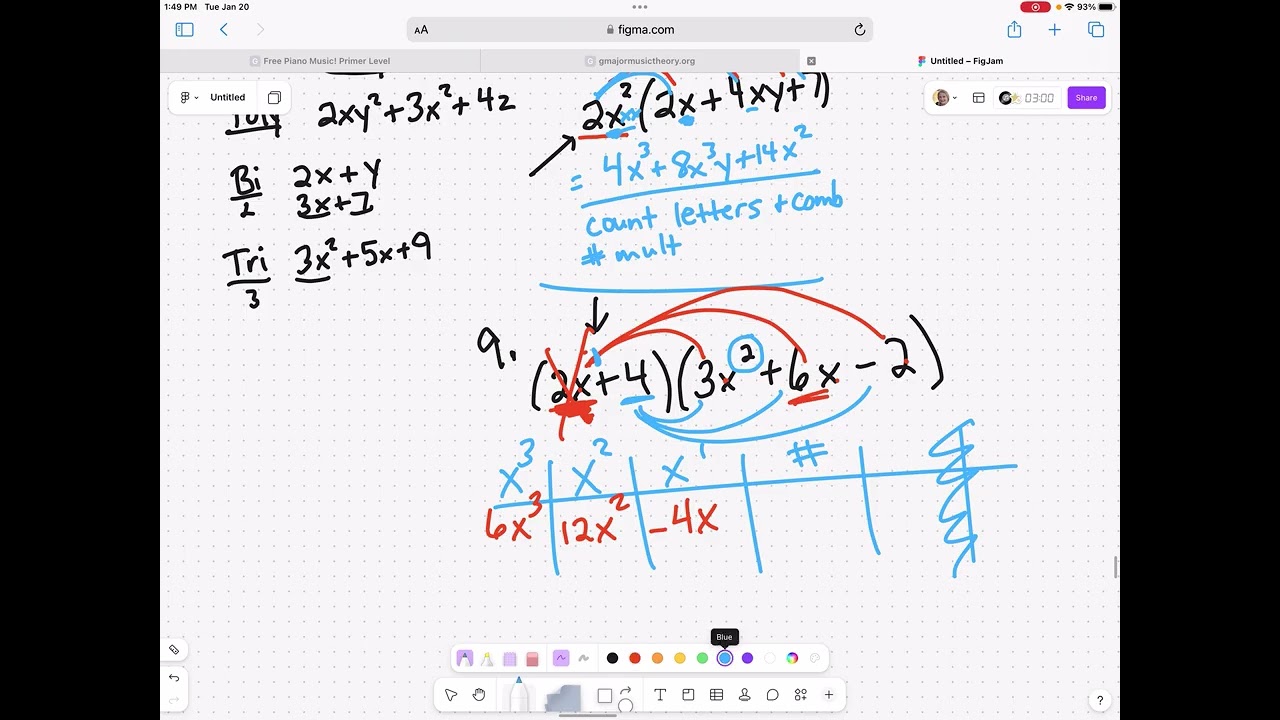 1:49 PM Tue Jan 20
93%
AA
figma.com
Free Piano Music! Primer Level
gmajormusictheory.org
Untitled – FigJam
Untitled
03:00
Share
Poly 2xy²+3x²+4z
Bi 2x+y
2 3x+7
Tri 3x²+5x+9
3
2x²(2x+4xy+7)
= 4x³+8x³y+14x²
count letters + comb
# mult
9.
(2x+4)(3x²+6x-2)
x³ x² x¹ #
6x³ 12x² -4x
Blue
T
?